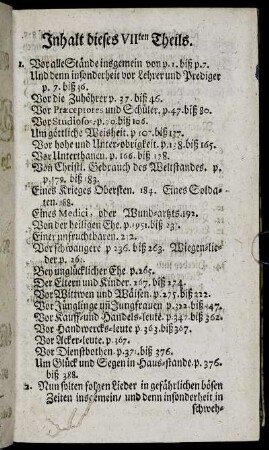 Inhalt dieses VIIten Theils.
1. Vor alle Stände insgemein von p. 1. biß p. 7.
Und denn insonderheit vor Lehrer und Prediger
p. 7. biß 36.
Vor die Zuhöhrer p. 37. biß 46.
Vor Præceptores und Schüler. p. 47. biß 80.
Vor Studiosos p. 90. biß 106.
Um göttliche Weisheit. p. 107. biß 137.
Vor hohe und Unter-obrigkeit. p. 138. biß 165.
Vor Unterthanen. p. 166. biß 178.
Von Christl. Gebrauch des Weltstandes. p.
p. 179. biß 183.
Eines Krieges Obersten. 184. Eines Solda-
ten. 188.
Eines Medici, oder Wund-artzts. 192.
Von der heiligen Ehe. p. 195. biß
Einer unfruchtbaren.
Vor schwangere p. 236. biß 263. Wiegen-lie-
der p. 26
Bey unglücklicher Ehe. p. 265.
Der Eltern und Kinder. 267. biß 274.
Vor Wittwen und Wäisen. p. 275. biß 322.
Vor Jünglinge und Jungfrauen p. 322. biß
Vor Kauff- und Handels-leute. p. 347. biß 362.
Vor Handwercks-leute p. 363. biß 307.
Vor Acker-leute. p. 367.
Vor Dienstbothen. p. 371. biß 376.
Um Glück und Segen in Haus-stande. p. 376.
biß 388.
2. Nun folten folgen Lieder in gefährlichen bösen
Zeiten insgemein, und denn insonderheit in
schweh-